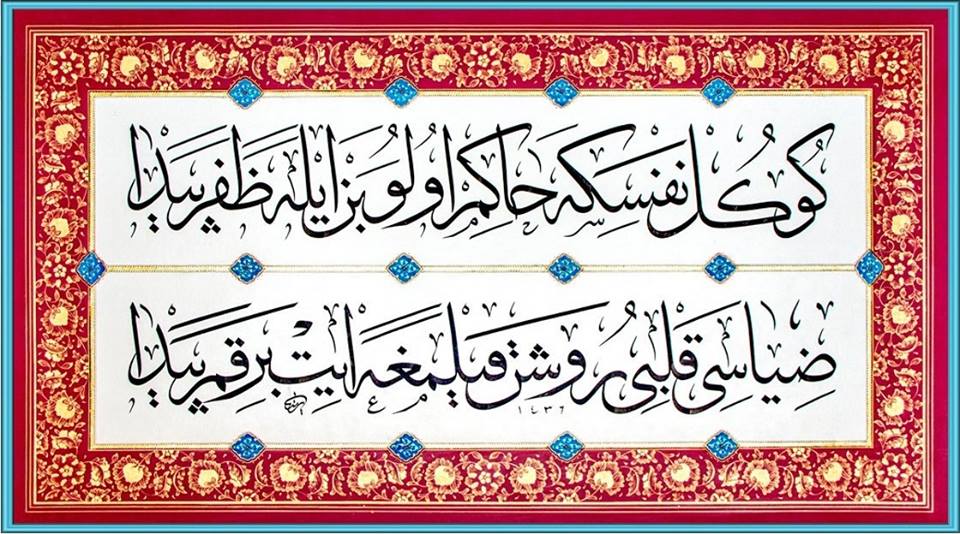 كُوكُل نفسِكه حاكم اولُوبن ايله ظفر پيدا
ضِياسى قلبى رُوشن قيلمغه ايت بر قمر پيدا
١٤٣٦